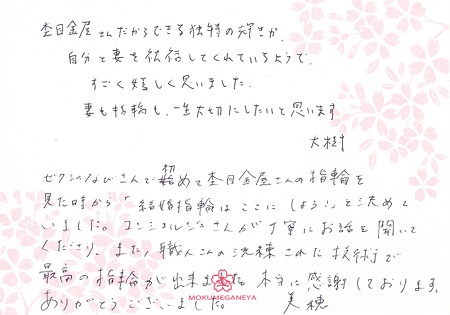 杢目金屋さんだからできる独特の輝きが、
自分と妻を祝福してくれているようで、
すごく嬉しく思いました。
妻も指輪も、一生大切にしたいと思います
大樹
ゼクシィなびさんで初めて杢目金屋さんの指輪を
見た時から「結婚指輪はここにしよう!」と決めて
いました。コンシェルジュさんが丁寧にお話を聞いて
くださり、また、職人さんの洗練された技術で
最高の指輪が出来ました。本当に感謝しております。
ありがとうございました。 美穂
MOKUMEGANEYA